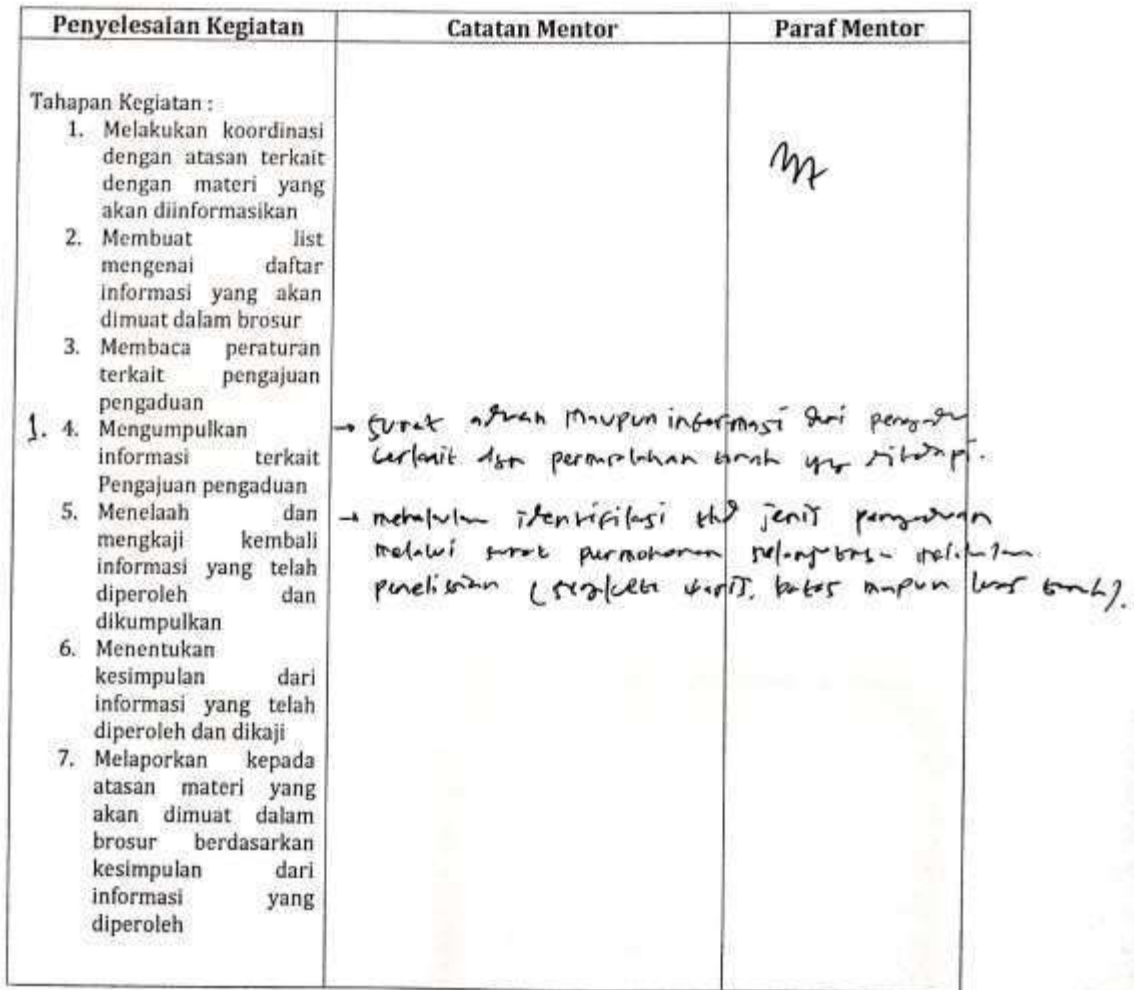 Penyelesaian Kegiatan
Catatan Mentor
Paraf Mentor
Tahapan Kegiatan :
1. Melakukan koordinasi
dengan atasan terkait
dengan materi yang
akan diinformasikan
2. Membuat list
mengenai daftar
informasi yang akan
dimuat dalam brosur
3. Membaca peraturan
terkait pengajuan
pengaduan
1. 4. Mengumpulkan
informasi terkait
Pengajuan pengaduan
5. Menelaah dan
mengkaji kembali
informasi yang telah
diperoleh dan
dikumpulkan
6. Menentukan
kesimpulan dari
informasi yang telah
diperoleh dan dikaji
7. Melaporkan kepada
atasan materi yang
akan dimuat dalam
brosur berdasarkan
kesimpulan dari
informasi yang
diperoleh
→ surat aduan maupun informasi dari pengadu
terkait dgn permasalahan tanah yg dihadapi.
→ melakukan identifikasi thd jenis pengaduan
melalui surat permohonan selanjutnya melakukan
penelitian (sengketa waris, batas maupun luas tanah).